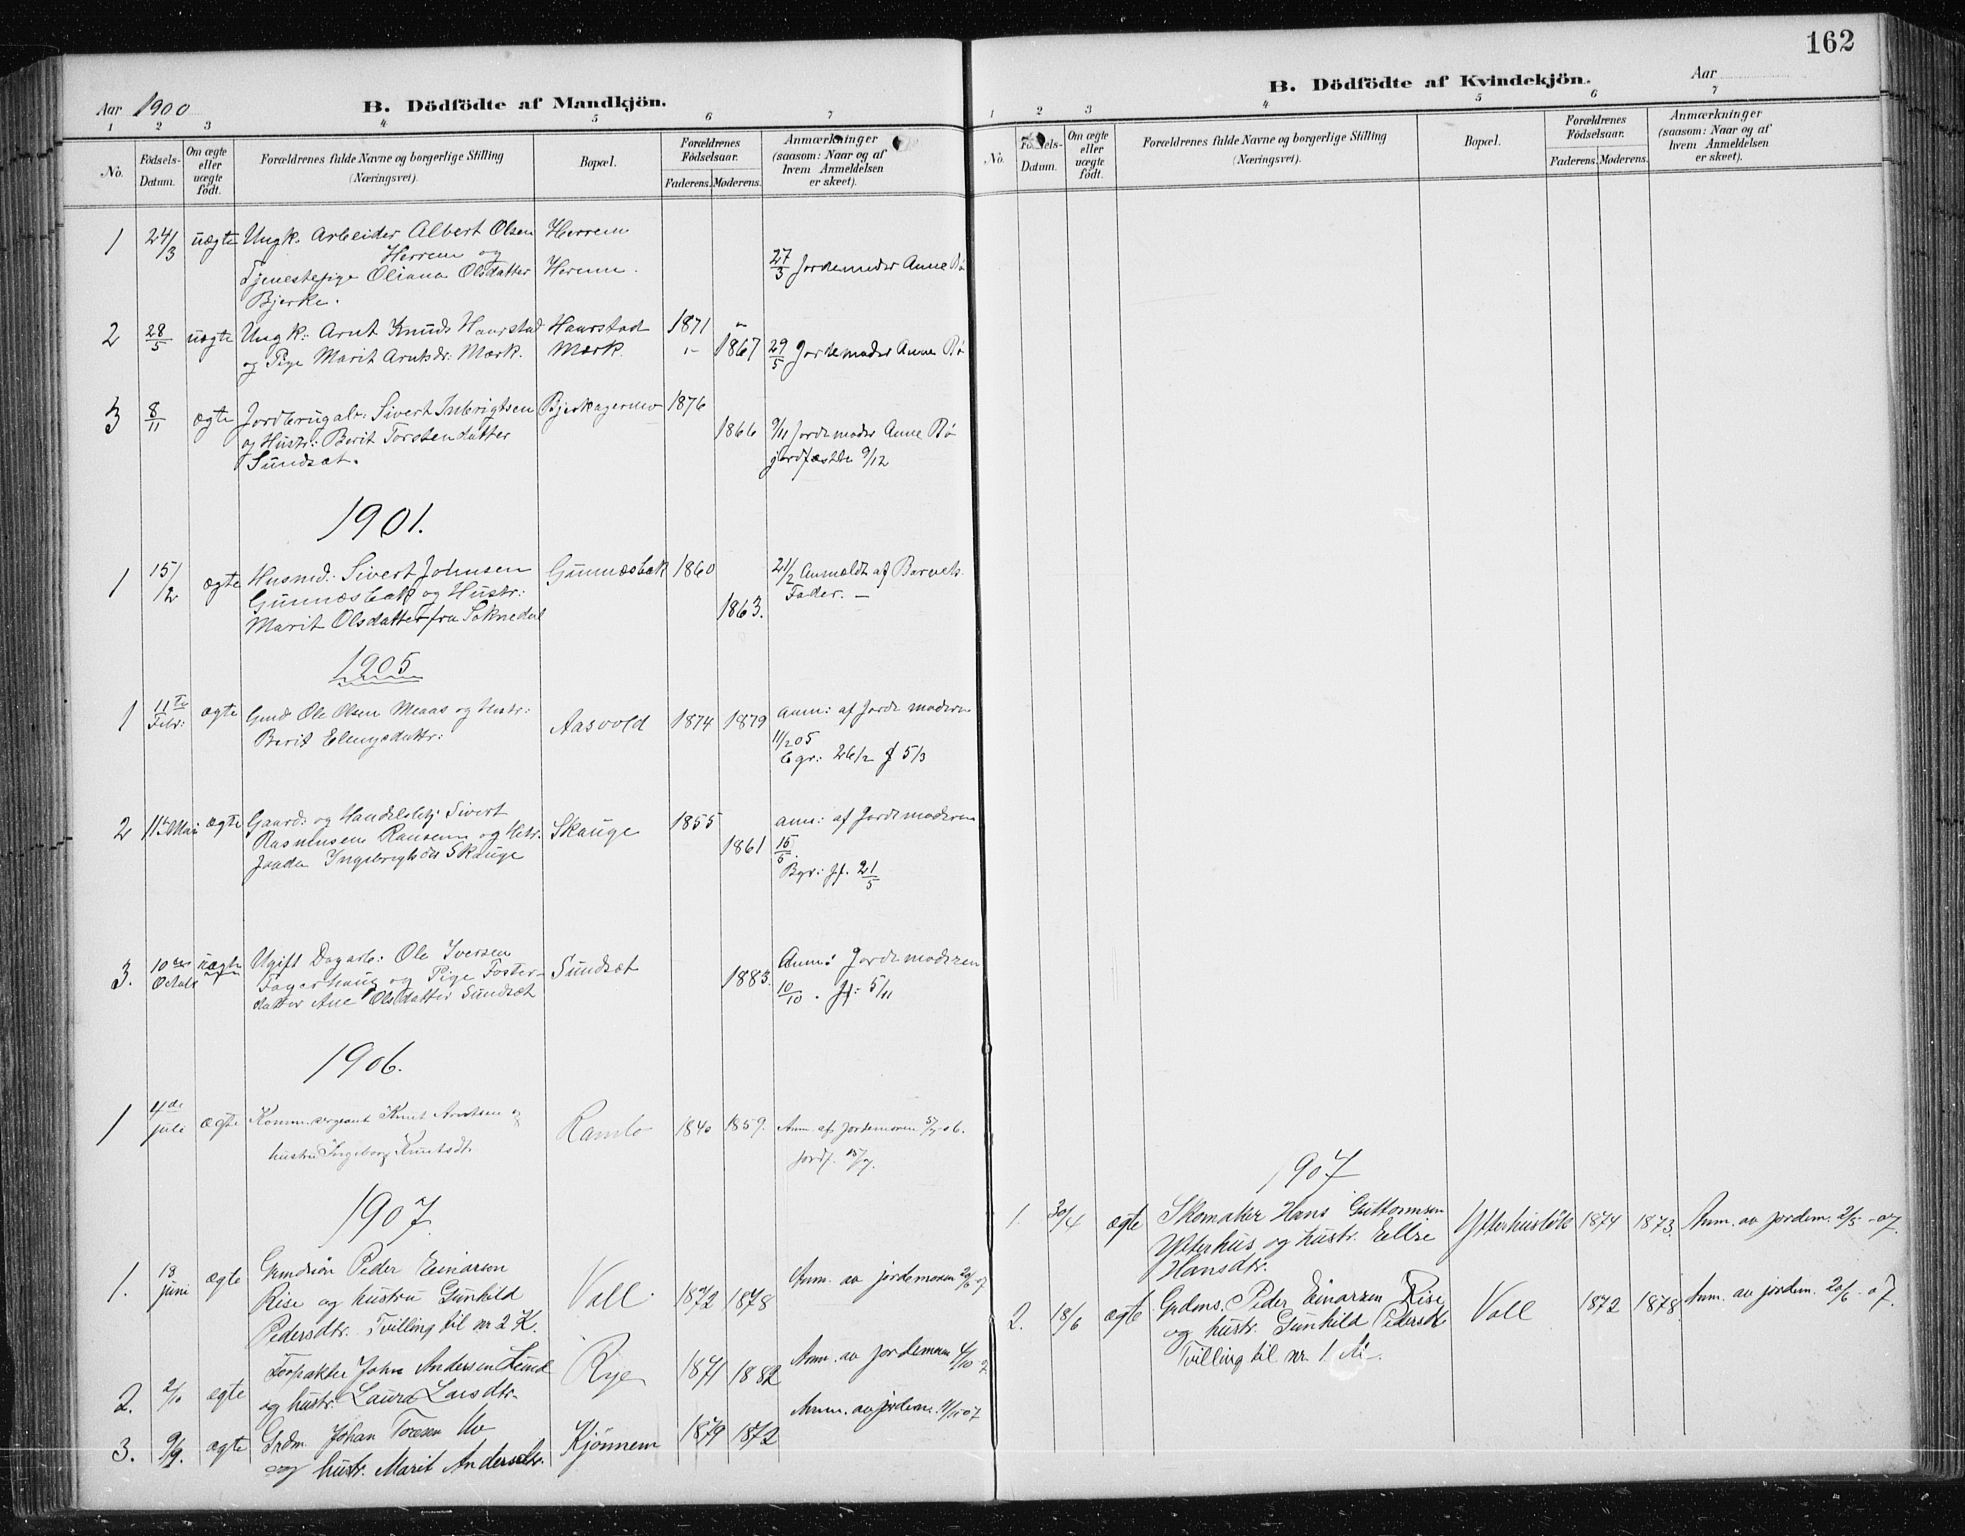 162
Aar 1900
B. Dödfödte af Mandkjön.
1 2 3 4 5 6 7
No.
Födsels-Datum.
Om ægte eller uægte födt.
Forældrenes fulde Navne og borgerlige Stilling (Næringsvei).
Bopæl.
Forældrenes Födselsaar.
Faderens. Moderens.
Anmærkninger (saasom: Naar og af hvem Anmeldelsen er skeet).
1 24/3 uægte Ungk. Arbeider Albert Olsen Herrem
Herrem og
Tjenestepige Oliana Olsdatter Herrem. 27/3 Jordemoder Anne Bö
Bjerke.
2 28/5 uægte Ungk: Arnt Knuds Haarstad Haarstad 1871
og Pige Marit Arntsdr: Mærk. Mærk. 1867 29/5 Jordemoder Anne Bö
3 8/11 ægte Jordbrugalr: Sivert Inbrigtsen Bjerkagermo 1876
og Hustr: Berit Torstendatter 1866 9/11 Jordemoder Anne Bö
Sundsæt. jordfæstde 9/12
1901.
1 15/2 ægte Husmd: Sivert Johnsen Gunnæsbak 1860 21/2 Anmeldt af Barnets
Gunnæsbak og Hustr: 1863. Fader. —
Marit Olsdatter fra Soknedal
1905
1 11te Febr: ægte Gmd Ole Olsen Meaas og Hustr: Aasvold 1874 1879 Anm: af Jordemoderen
Berit Elingsdattr: 11/2 05
Bgr: 26/2 J 5/3
2 15 Mai ægte Gaard: og Handelsbtj. Sivert Skauge 1855 anm: af Jordemoderen
Rasmusen og Hstr. 1861 15/5.
Ingebrigtsdtr Skauge Bgr: Jf. 21/5
3. 10de Octob uægte Ugift Dagarb: Ole Iversen Sundsæt 1883. Anm: Jordemoderen
Fagerhaug og Pige Foster- 10/10. Jf: 5/11
datter Ane Olsdatter Sundsæt
1906.
1 4de juli ægte Komm.sergeant Knut Arntsen og Ramlo 1840 1859. Anm. af Jordemoren 5/7-06.
hustru Ingeborg Knutsdtr. Jordf. 15/7.
1907.
1. 18 juni ægte Grmdsön Peder Einarsen Voll 1872 1878 Anm. av jordemoren 20/6-07
Rise og hustru Gunhild
Pedersdtr. Tvilling til nr 2 K.
2. 2/10 ægte Forpakter John Andersen Lund Rye 1871 1882 Anm. av jordemoren 4/10-07
og hustr. Laura Larsdtr.
3. 9/9. ægte Grdm. Johan Toresen Mo Kjönnem 1879 1872 Anm. av jordem.
og hustr. Marit Andersdtr.
B. Dödfödte af Kvindekjön.
Aar
1 2 3 4 5 6 7
No.
Födsels-Datum.
Om ægte eller uægte födt.
Forældrenes fulde Navne og borgerlige Stilling (Næringsvei).
Bopæl.
Forældrenes Födselsaar.
Faderens. Moderens.
Anmærkninger (saasom: Naar og af hvem Anmeldelsen er skeet).
1907
1. 30/4 ægte Skomaker Hans Guttormsen Ytterhuslök 1874 1873. Anm. av jordem. 2/5-07.
Ytterhus og hustr. Ellse
Hansdtr.
2. 18/6 ægte Grdsms. Peder Einarsen Rise Voll 1872 1878 Anm. av jordem. 20/6-07.
og hustr. Gunhild Pedersdtr
Tvilling til nr. 1